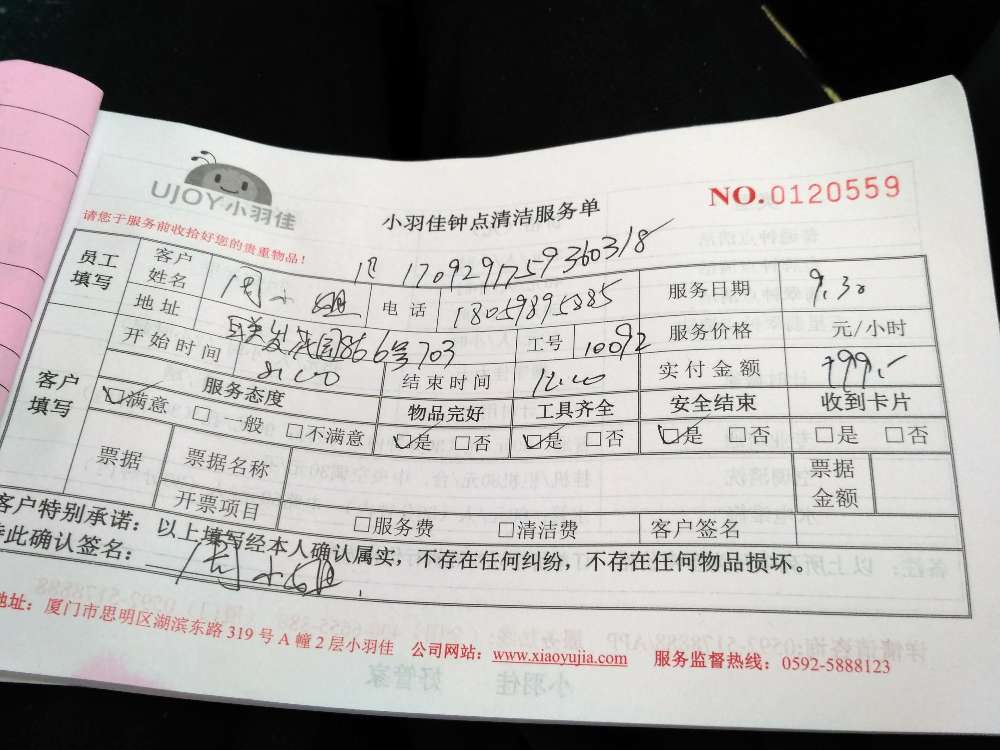 UJOY小羽佳
NO.0120559
小羽佳钟点清洁服务单
请您于服务前收拾好您的贵重物品!
1709291759360318
员工填写 客户姓名 周小姐 电话 18059895885 服务日期 9.30
地址 联发花园86 6号703 工号 10092 服务价格 元/小时
开始时间 8:00 结束时间 12:00 实付金额 199.-
客户填写 服务态度 物品完好 工具齐全 安全结束 收到卡片
☑满意 □一般 □不满意 ☑是 □否 ☑是 □否 ☑是 □否 □是 □否
票据 票据名称 票据金额
开票项目 □服务费 □清洁费 客户签名
客户特别承诺:以上填写经本人确认属实,不存在任何纠纷,不存在任何物品损坏。
特此确认签名: 周小姐
地址:厦门市思明区湖滨东路 319 号 A 幢 2 层小羽佳 公司网站:www.xiaoyujia.com 服务监督热线:0592-5888123